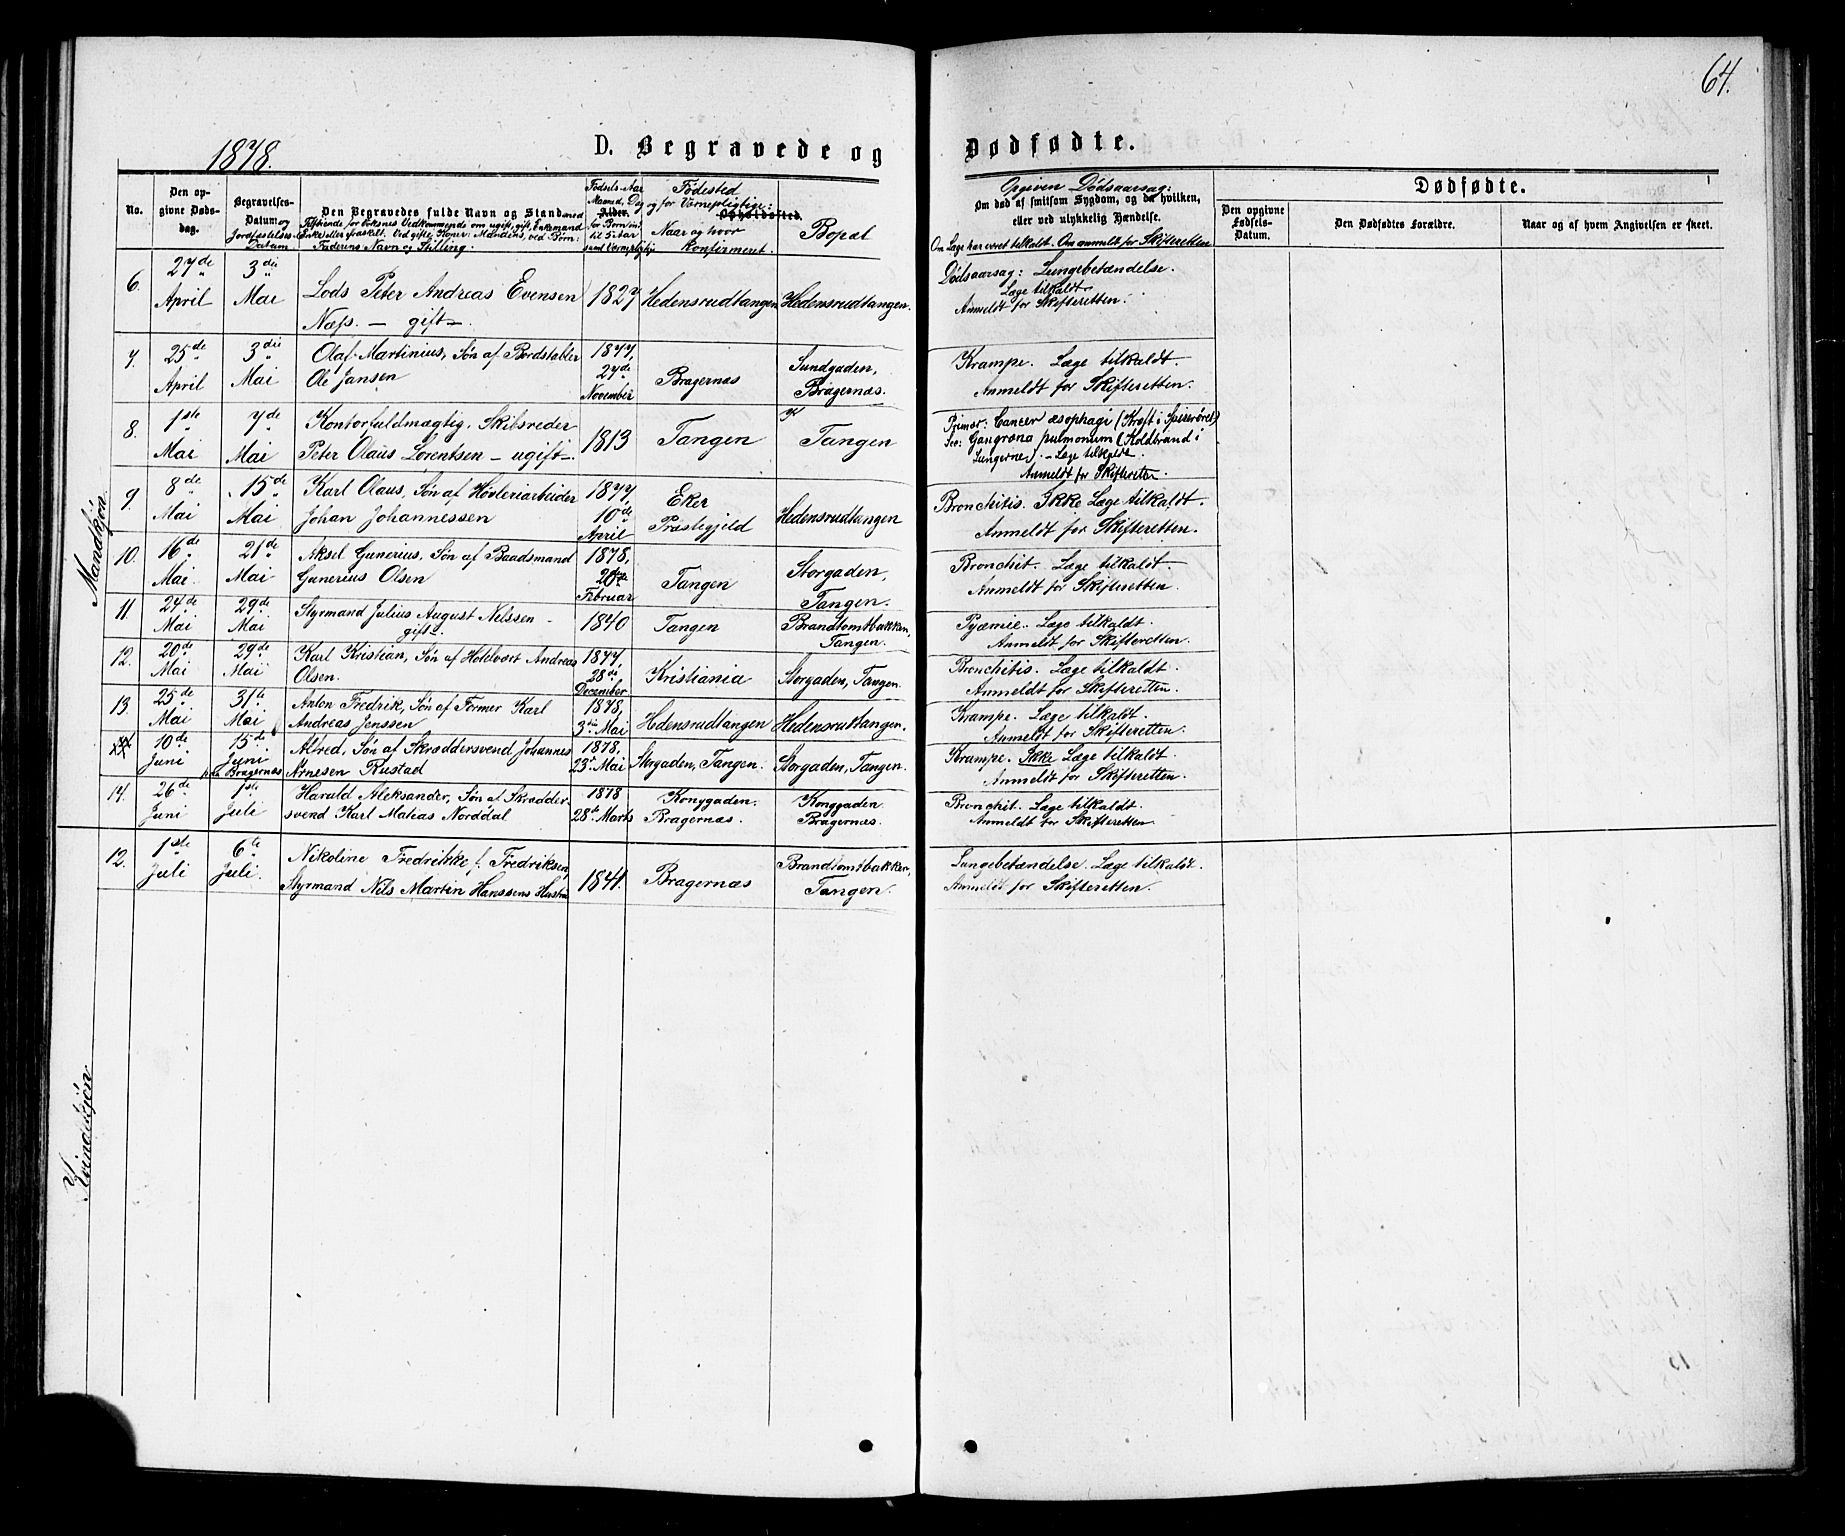 64.
1878.
D. Begravede og Dødfødte.
No.
Den opgivne Dødsdag.
Begravelses-Datum og Jordfæstelses-Datum
Den Begravedes fulde Navn og Stand
Fødsels-Aar
Fødested
og for Værnepligtige:
Naar og hvor
konfirmeret.
Bopæl
Opgiven Dødsaarsag:
Om død af smitsom Sygdom, og da hvilken,
eller ved ulykkelig Hændelse.
Om Læge har været tilkaldt. Om anmeldt for Skifteretten
Dødfødte.
Den opgivne Fødsels-Datum.
Den Dødfødtes Forældre.
Naar og af hvem Angivelsen er skeet.
Mandkjøn
6. 27de April 3die Mai Lods Peter Andreas Evensen Næss. — gift —. 1827 Hedensrudtangen Hedensrudtangen. Dødsaarsag: Lungebetændelse. Læge tilkaldt. Anmeldt for Skifteretten.
7. 25de April 3die Mai Olaf Martinius, Søn af Bordstabler Ole Jansen 1877, 27de November Bragernæs Sundgaden, Bragernæs. Krampe. Læge tilkaldt. Anmeldt for Skifteretten.
8. 1ste Mai 7de Mai Kontorfuldmægtig, Skibsreder Peter Olaus Lorentsen — ugift —. 1813 Tangen Tangen Primær: Cancer æsophagi (Kræft i Spiserøret) Sec: Gangræna pulmonum (Koldbrand i Lungerne). — Læge tilkaldt. Anmeldt for Skifteretten
9. 8de Mai 15de Mai Karl Olaus, Søn af Høvleriarbeider Johan Johannessen 1877, 10de April Eker Præstegjeld Hedensrudtangen Bronchitis. Ikke Læge tilkaldt. Anmeldt for Skifteretten.
10. 16de Mai. 21de Mai Aksel Gunerius, Søn af Baadsmand Gunerius Olsen 1878, 20de Februar Tangen Storgaden, Tangen. Bronchit. Læge tilkaldt. Anmeldt for Skifteretten.
11. 24de Mai 29de Mai Styrmand Julius August Nelssen — gift —. 1840 Tangen Brandtomtbakken, Tangen. Pyæmie. Læge tilkaldt. Anmeldt for Skifteretten.
12. 20de Mai 29de Mai Karl Kristian, Søn af Andreas Olsen. 1877, 28de December Kristiania Storgaden, Tangen. Bronchitis. Læge tilkaldt. Anmeldt for Skifteretten.
13. 25de Mai 31te Mai Anton Fredrik, Søn af Former Karl Andreas Jenssen 1878, 3die Mai Hedensrudtangen Hedensrudtangen. Krampe. Læge tilkaldt. Anmeldt for Skifteretten.
10de Juni 15de Juni paa Bragernæs Alfred, Søn af Skræddersvend Johannes Arnesen Rustad 1878, 23de Mai Storgaden, Tangen. Storgaden, Tangen. Krampe. Ikke Læge tilkaldt. Anmeldt for Skifteretten.
14. 26de Juni 1ste Juli Harald Aleksander, Søn af Skræddersvend Karl Matias Norddal 1878 28de Marts Konggaden. Bragernæs. Konggaden Bragernæs. Bronchit. Læge tilkaldt. Anmeldt for Skifteretten.
Kvindekjøn
12. 1ste Juli 6te Juli. Nikoline Fredrikke f. Fredriksen, Styrmand Nels Martin Hanssens Hustru 1841. Bragernæs Brandtomtbakken, Tangen. Lungebetændelse. Læge tilkaldt. Anmeldt for Skifteretten.